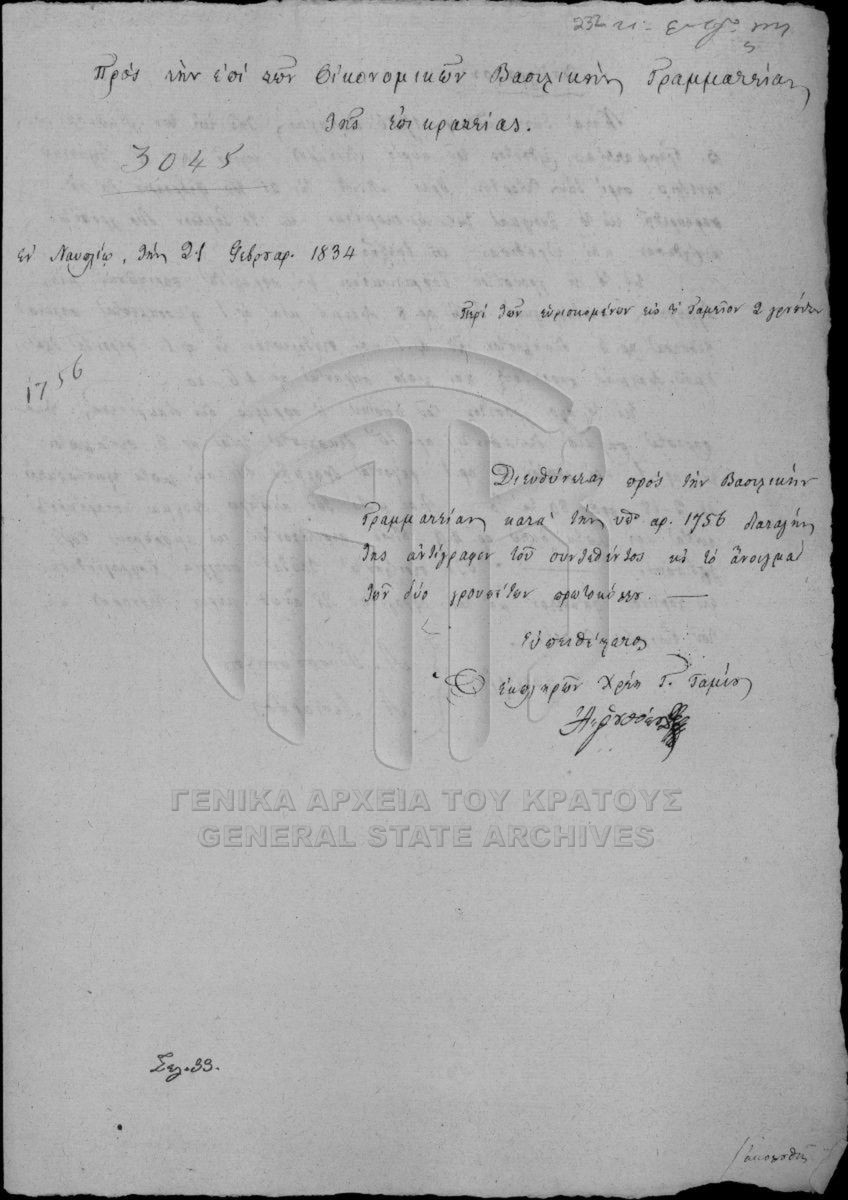 232
Πρὸς τὴν ἐπὶ τῶν Οἰκονομικῶν Βασιλικὴν Γραμματείαν
τῆς Ἐπικρατείας.
3045
ἐν Ναυπλίῳ, τῆς 21 Φεβρουαρ. 1834
Περὶ τῶν εὑρισκομένων εἰς τὸ Ταμεῖον 2
1756
Διευθύνεται πρὸς τὴν Βασιλικὴν
Γραμματείαν κατὰ τὴν ὑπ' ἀρ. 1756 διαταγήν
της ἀντίγραφον τοῦ συνταθέντος εἰς τὸ ἄνοιγμα
τῶν δύο γρουπέτων πρωτοκόλλου. —
Εὐπειθέστατος
Ὁ ἐκπληρῶν Χρέη Γ. Ταμίου
ΓΕΝΙΚΑ ΑΡΧΕΙΑ ΤΟΥ ΚΡΑΤΟΥΣ
GENERAL STATE ARCHIVES
Σελ. 33.